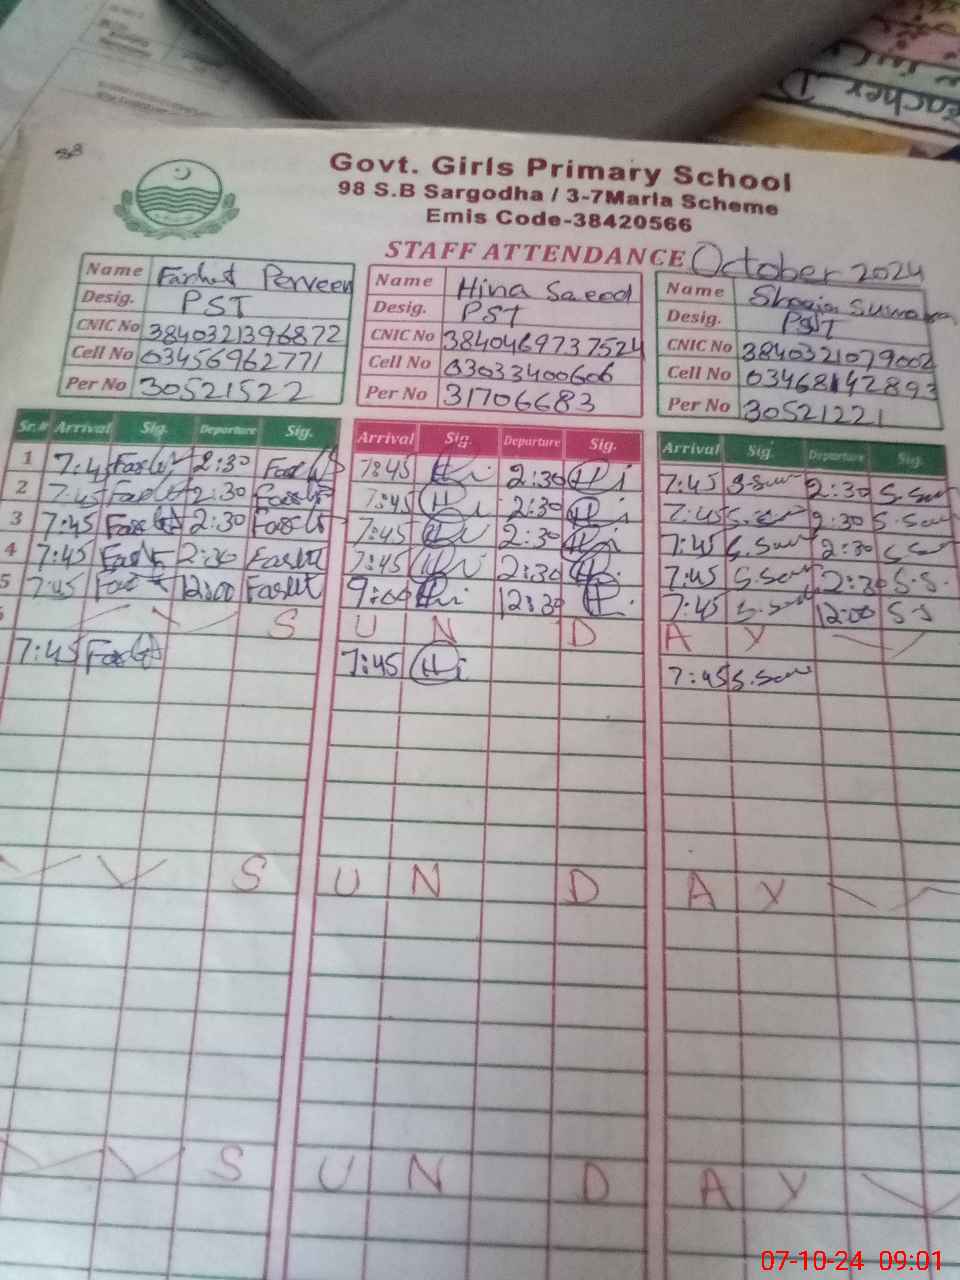 Govt. Girls Primary School
98 S.B Sargodha / 3-7Marla Scheme
Emis Code-38420566
STAFF ATTENDANCE October 2024
Name Farhet Perveen
Desig. PST
CNIC No 3840321396872
Cell No 03456962771
Per No 30521522
Name Hina Saeed
Desig. PST
CNIC No 3840469737524
Cell No 03033400606
Per No 31706683
Name
Desig. PST
CNIC No 3840321079002
Cell No 03468142893
Per No 30521221
Sr.# Arrival Sig. Departure Sig. Arrival Sig. Departure Sig. Arrival Sig. Departure Sig.
1 7:45 2:30 7:45 Hi 2:30 Hi 7:45 S.Sum 2:30 S.Sum
2 7:45 2:30 7:45 Hi 2:30 Hi 7:45 2:30 S.Sum
3 7:45 2:30 7:45 Hi 2:30 Hi 7:45 S.Sum 2:30
4 7:45 2:30 7:45 Hi 2:30 7:45 S.Sum 2:30 S.S.
5 7:45 12:00 9:00 Hi 12:30 7:45 12:00 S.S
S U N D A Y
7:45 7:45 Hi 7:45 S.Sum
S U N D A Y
S U N D A Y
07-10-24 09:01